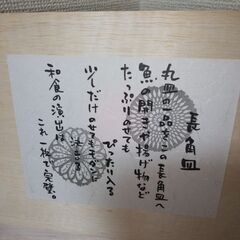 長角皿
丸皿の一品をこの長角皿へ
魚の開きや揚げ物など
たっぷりのせても
ぴったり入る
少しだけのせてもオシャレ
和食の演出は
これ一枚で完璧。